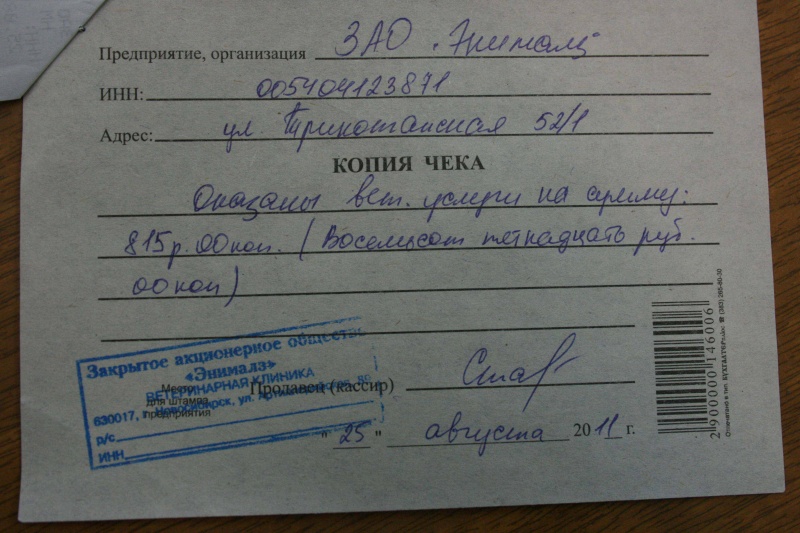 Предприятие, организация ЗАО "Энималз"
ИНН: 005404123871
Адрес: ул. Трикотажная 52/1
КОПИЯ ЧЕКА
Оказаны вет. услуги на сумму:
815р. 00коп. (Восемьсот пятнадцать руб.
00коп)
Закрытое акционерное общество
«Энималз»
ВЕТЕРИНАРНАЯ КЛИНИКА
630017, г. Новосибирск, ул.
р/с
ИНН
Место
для штампа
предприятия
Продавец (кассир)
"25" августа 2011 г.
2 900000 146006